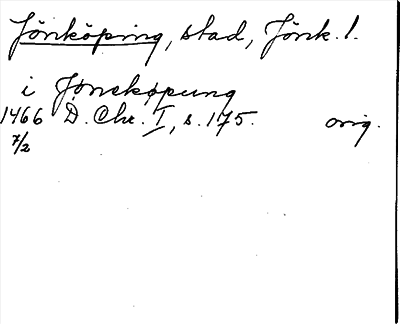 Jönköping, stad, Jönk. l.
i Jønekøpung
1466 D. Chr. I, s. 175. orig.
7/2